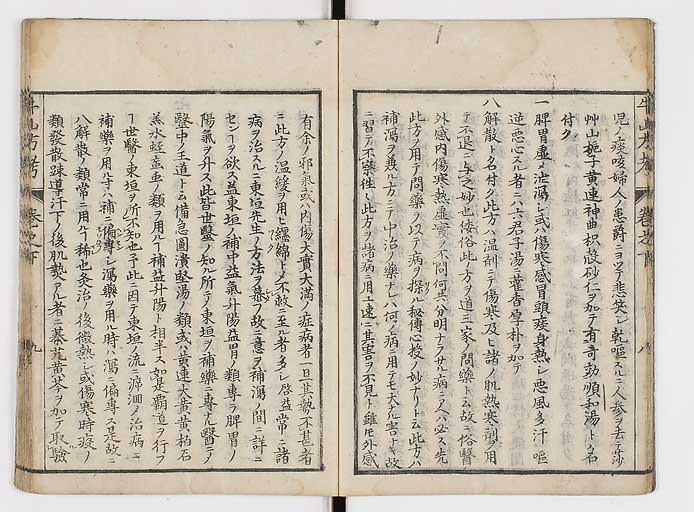 児ノ痰咳婦人ノ患欝ニヨツテ悲笑シ乾嘔スルニ人参ヲ去テ莎
艸山梔子黄連神曲枳殻砂仁ヲ加テ有奇効順和湯トタ名
付ク
一脾胃虚シ泄瀉シ或ハ傷寒感冒頭痰身熱シ悪風多汗嘔
逆悪心スル者ニハ六君子湯ニ藿香厚朴ヲ加テ
八解散ト名付ク此方ハ温剤ニテ傷寒及ヒ諸ノ肌熱寒剤ヲ用
テ不退ニ与之妙也俀俗此方ヲ道三家ノ問藥ト云故ニ俗醫
外感内傷寒熱虚實ヲ不問何共分明ナラサル病ニハ必ス先
此方ヲ用テ問藥ヲ以テ病ヲ探ル秘傳心授ノ妙トリト云此方ハ
補瀉ヲ兼ル方ニテ中治ノ藥ナレハ何ノ病ニ用テモ大ナル害ナキ故
ニ習テ不藥徃々此方ヲ諸病ニ用工速ニ其害ヲ不見ト雖モ外感
有余ノ邪氣或ハ内傷大實大満ノ症病者一旦其勢不甚者
ニ此方ノ温緩ヲ用ヒ纏綿トメ不救ニ至ル者多シ啓益常ニ諸
病ヲ治スルニ東垣先生ノ方法ヲ慕フ故ニ意ヲ補瀉ノ間ニ詳ニ
センヿヲ欲ス益東垣ノ補中益氣升陽益胃ノ類専ラ脾胃ノ
陽氣ヲ升ス此皆世醫ノ知ル所テ東垣ヲ補藥ニ専ナル醫ニノ
醫中ノ王道ト云備急圓潰堅湯ノ類或ハ黄連大黄黄柏石
羔水蛭䖟虫ノ類ヲ用ヿ補益升陽ト相半ス如是覇道ヲ行フ
ヿ世醫ノ東垣ヲ所不知也予此ニ因テ東垣ノ流ニ泝洄ノ治病ニ
補藥ヲ用ル寸ハ補ニ偏専シ瀉藥ヲ用ル時ハ瀉ニ偏専ス是故ニ
八解散ノ類常ニ用ヿ稀也灸治ノ後微熱シ或傷寒時疫ノ
類發散疎導汗下ノ後肌熱アル者ニ葛芪黄芩ヲ加テ取驗